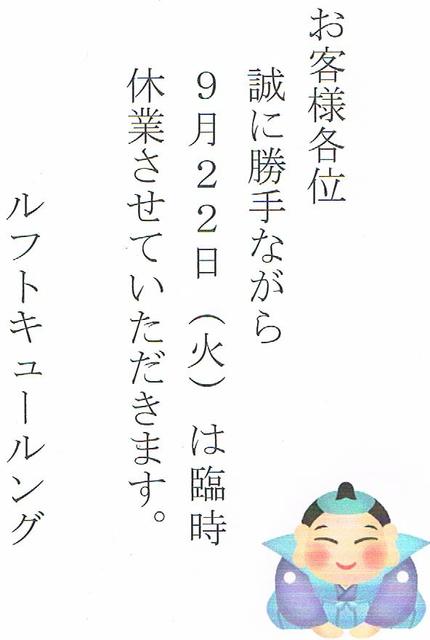 お客様各位
誠に勝手ながら
９月２２日（火）は臨時
休業させていただきます。
ルフトキュールング